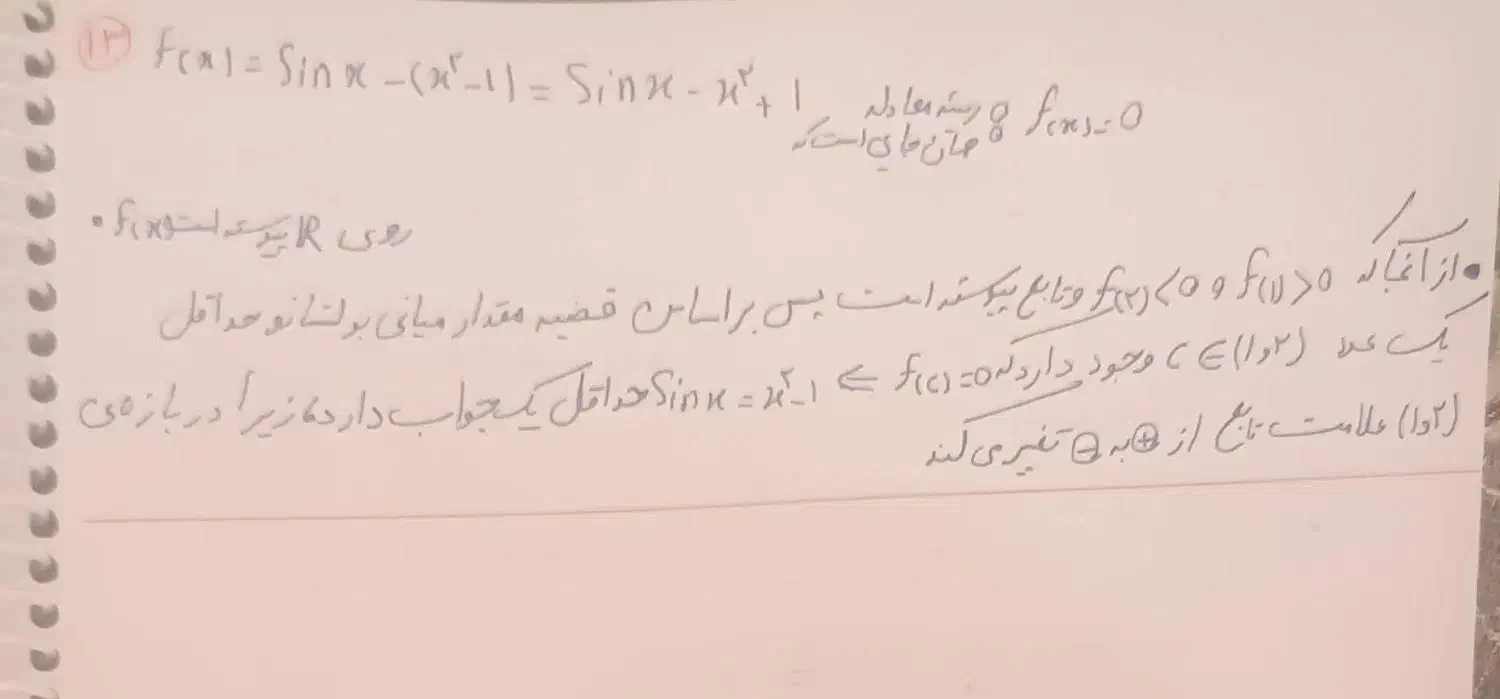 ۱۳ f(x) = Sin x - (x² - 1) = Sin x - x² + 1 ریشه معادله : f(x) = 0
همان جایی است که
• f(x) پیوسته است روی IR
• از آنجا که f(1) > 0 و f(2) < 0 و تابع پیوسته است پس براساس قضیه مقدار میانی بولتسانو حداقل
یک عدد c ∈ (1,2) وجود دارد که f(c) = 0 ⇒ Sin x = x² - 1 حداقل یک جواب دارد، زیرا در بازه‌ی
(1,2) علامت تابع از ⊕ به ⊖ تغییر می کند